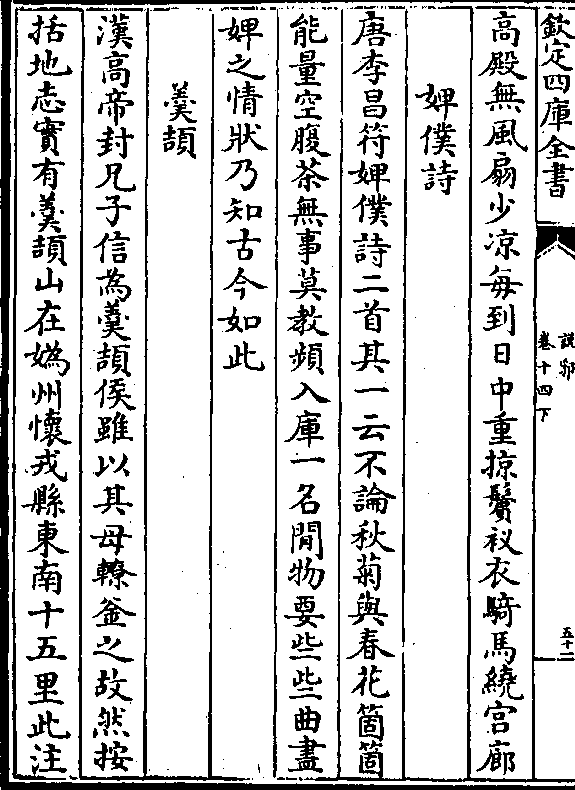 欽定四庫全書
說郛
卷十四下
五十二
高殿無風扇少凉每到日中重掠鬢衩衣騎馬繞宮廊
婢僕詩
唐李昌符婢僕詩二首其一云不論秋菊與春花箇箇
能量空腹茶無事莫教頻入庫一名閒物要些些曲盡
婢之情狀乃知古今如此
羹頡
漢高帝封兄子信為羹頡侯雖以其母轑釜之故然按
括地志實有羹頡山在媯州懷戎縣東南十五里此注